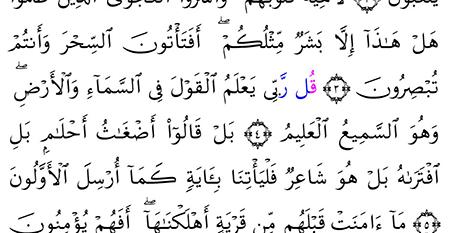 يَلْعَبُونَ ﴿٢﴾ لَاهِيَةً قُلُوبُهُمْ ۗ وَأَسَرُّوا۟ ٱلنَّجْوَى ٱلَّذِينَ ظَلَمُوا۟
هَلْ هَٰذَآ إِلَّا بَشَرٌ مِّثْلُكُمْ ۖ أَفَتَأْتُونَ ٱلسِّحْرَ وَأَنتُمْ
تُبْصِرُونَ ﴿٣﴾ قُل رَّبِّى يَعْلَمُ ٱلْقَوْلَ فِى ٱلسَّمَآءِ وَٱلْأَرْضِ ۖ
وَهُوَ ٱلسَّمِيعُ ٱلْعَلِيمُ ﴿٤﴾ بَلْ قَالُوٓا۟ أَضْغَٰثُ أَحْلَٰمٍۭ بَلِ
ٱفْتَرَىٰهُ بَلْ هُوَ شَاعِرٌ فَلْيَأْتِنَا بِـَٔايَةٍ كَمَآ أُرْسِلَ ٱلْأَوَّلُونَ
﴿٥﴾ مَآ ءَامَنَتْ قَبْلَهُم مِّن قَرْيَةٍ أَهْلَكْنَٰهَآ ۖ أَفَهُمْ يُؤْمِنُونَ